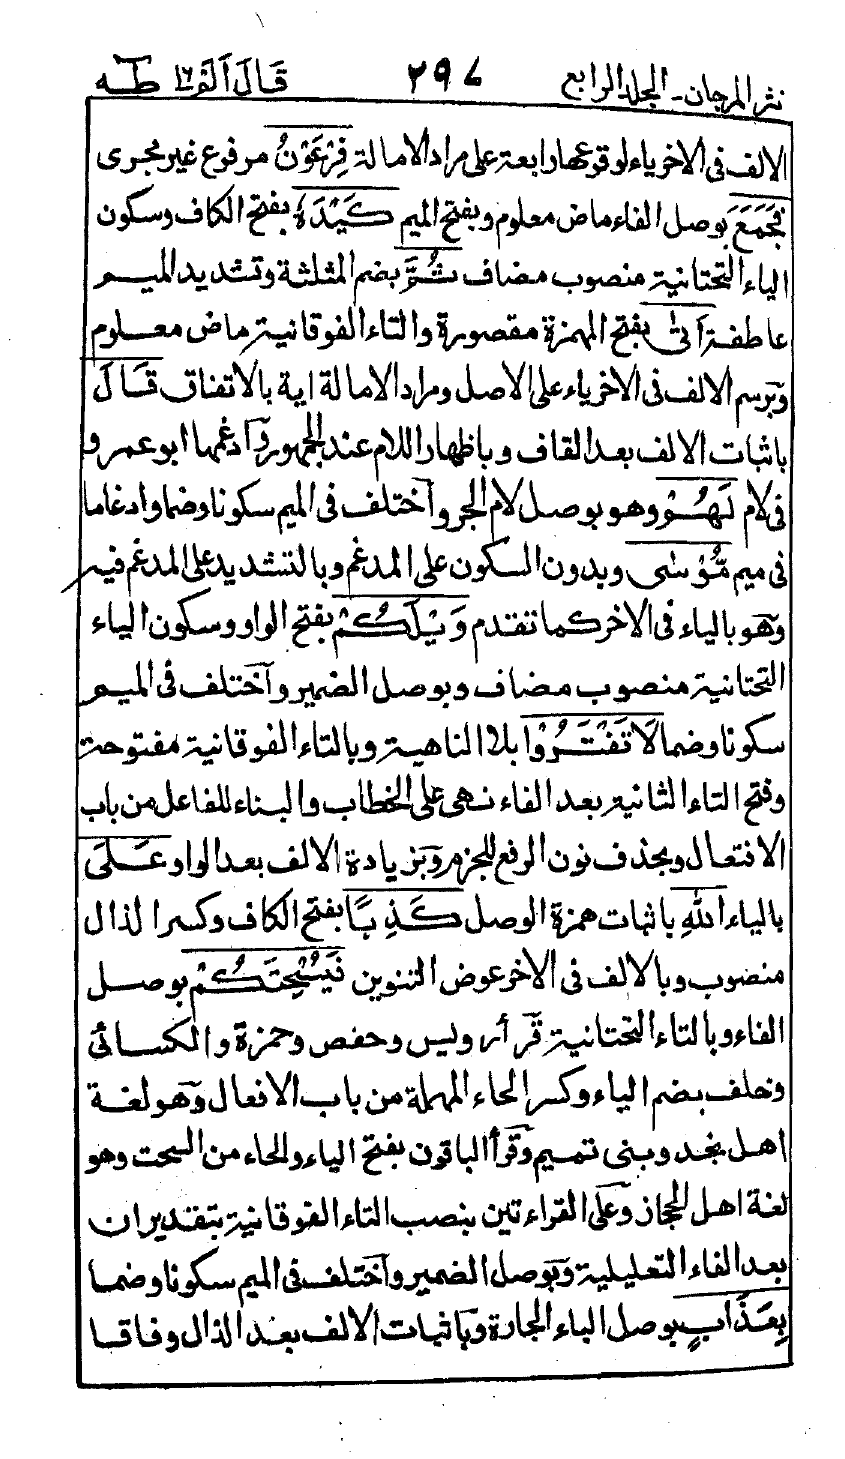 نثر المرجان - المجلد الرابع ٢٩٧ قَالَ اَلَمْ ١٦ طه
الالف فى الاخر ياء لوقوعها رابعة على مراد الامالة فِرْعَوْنُ مرفوع غير مجرى
فَجَمَعَ بوصل الفاء ماض معلوم وبفتح الميم كَيْدَهٗ بفتح الكاف وسكون
الياء التحتانية منصوب مضاف ثُمَّ بضم المثلثة وتشديد الميم
عاطفة اَتٰى بفتح الهمزة مقصورة والتاء الفوقانية ماض معلوم
وبرسم الالف فى الاخر ياء على الاصل ومراد الامالة اية بالاتفاق قَالَ
باثبات الالف بعد القاف وباظهار اللام عند الجمهور وادغمها ابو عمرو
فى لام لَهُمْ وهو بوصل لام الجر واختلف فى الميم سكونا وضما وادغاما
فى ميم مُّوْسٰى وبدون السكون على المدغم وبالتشديد على المدغم فيه
وهو بالياء فى الاخر كما تقدم وَيْلَكُمْ بفتح الواو وسكون الياء
التحتانية منصوب مضاف وبوصل الضمير واختلف فى الميم
سكونا وضما لَا تَفْتَرُوْا بلا الناهية وبالتاء الفوقانية مفتوحة
وفتح التاء الثانية بعد الفاء نهى على الخطاب والبناء للفاعل من باب
الافتعال وبحذف نون الرفع للجزم وبزيادة الالف بعد الواو عَلَى
بالياء اللهِ باثبات همزة الوصل كَذِبًا بفتح الكاف وكسر الذال
منصوب وبالالف فى الاخر عوض التنوين فَيُسْحِتَكُمْ بوصل
الفاء وبالتاء التحتانية قرأ رويس وحفص وحمزة والكسائى
وخلف بضم الياء وكسر الحاء المهملة من باب الافعال وهو لغة
اهل نجد وبنى تميم وقرأ الباقون بفتح الياء والحاء من السحت وهو
لغة اهل الحجاز وعلى القراءتين بنصب التاء الفوقانية بتقدير ان
بعد الفاء التعليلية وبوصل الضمير واختلف فى الميم سكونا وضما
بِعَذَابٍ بوصل الباء الجارة وباثبات الالف بعد الذال وفاقا